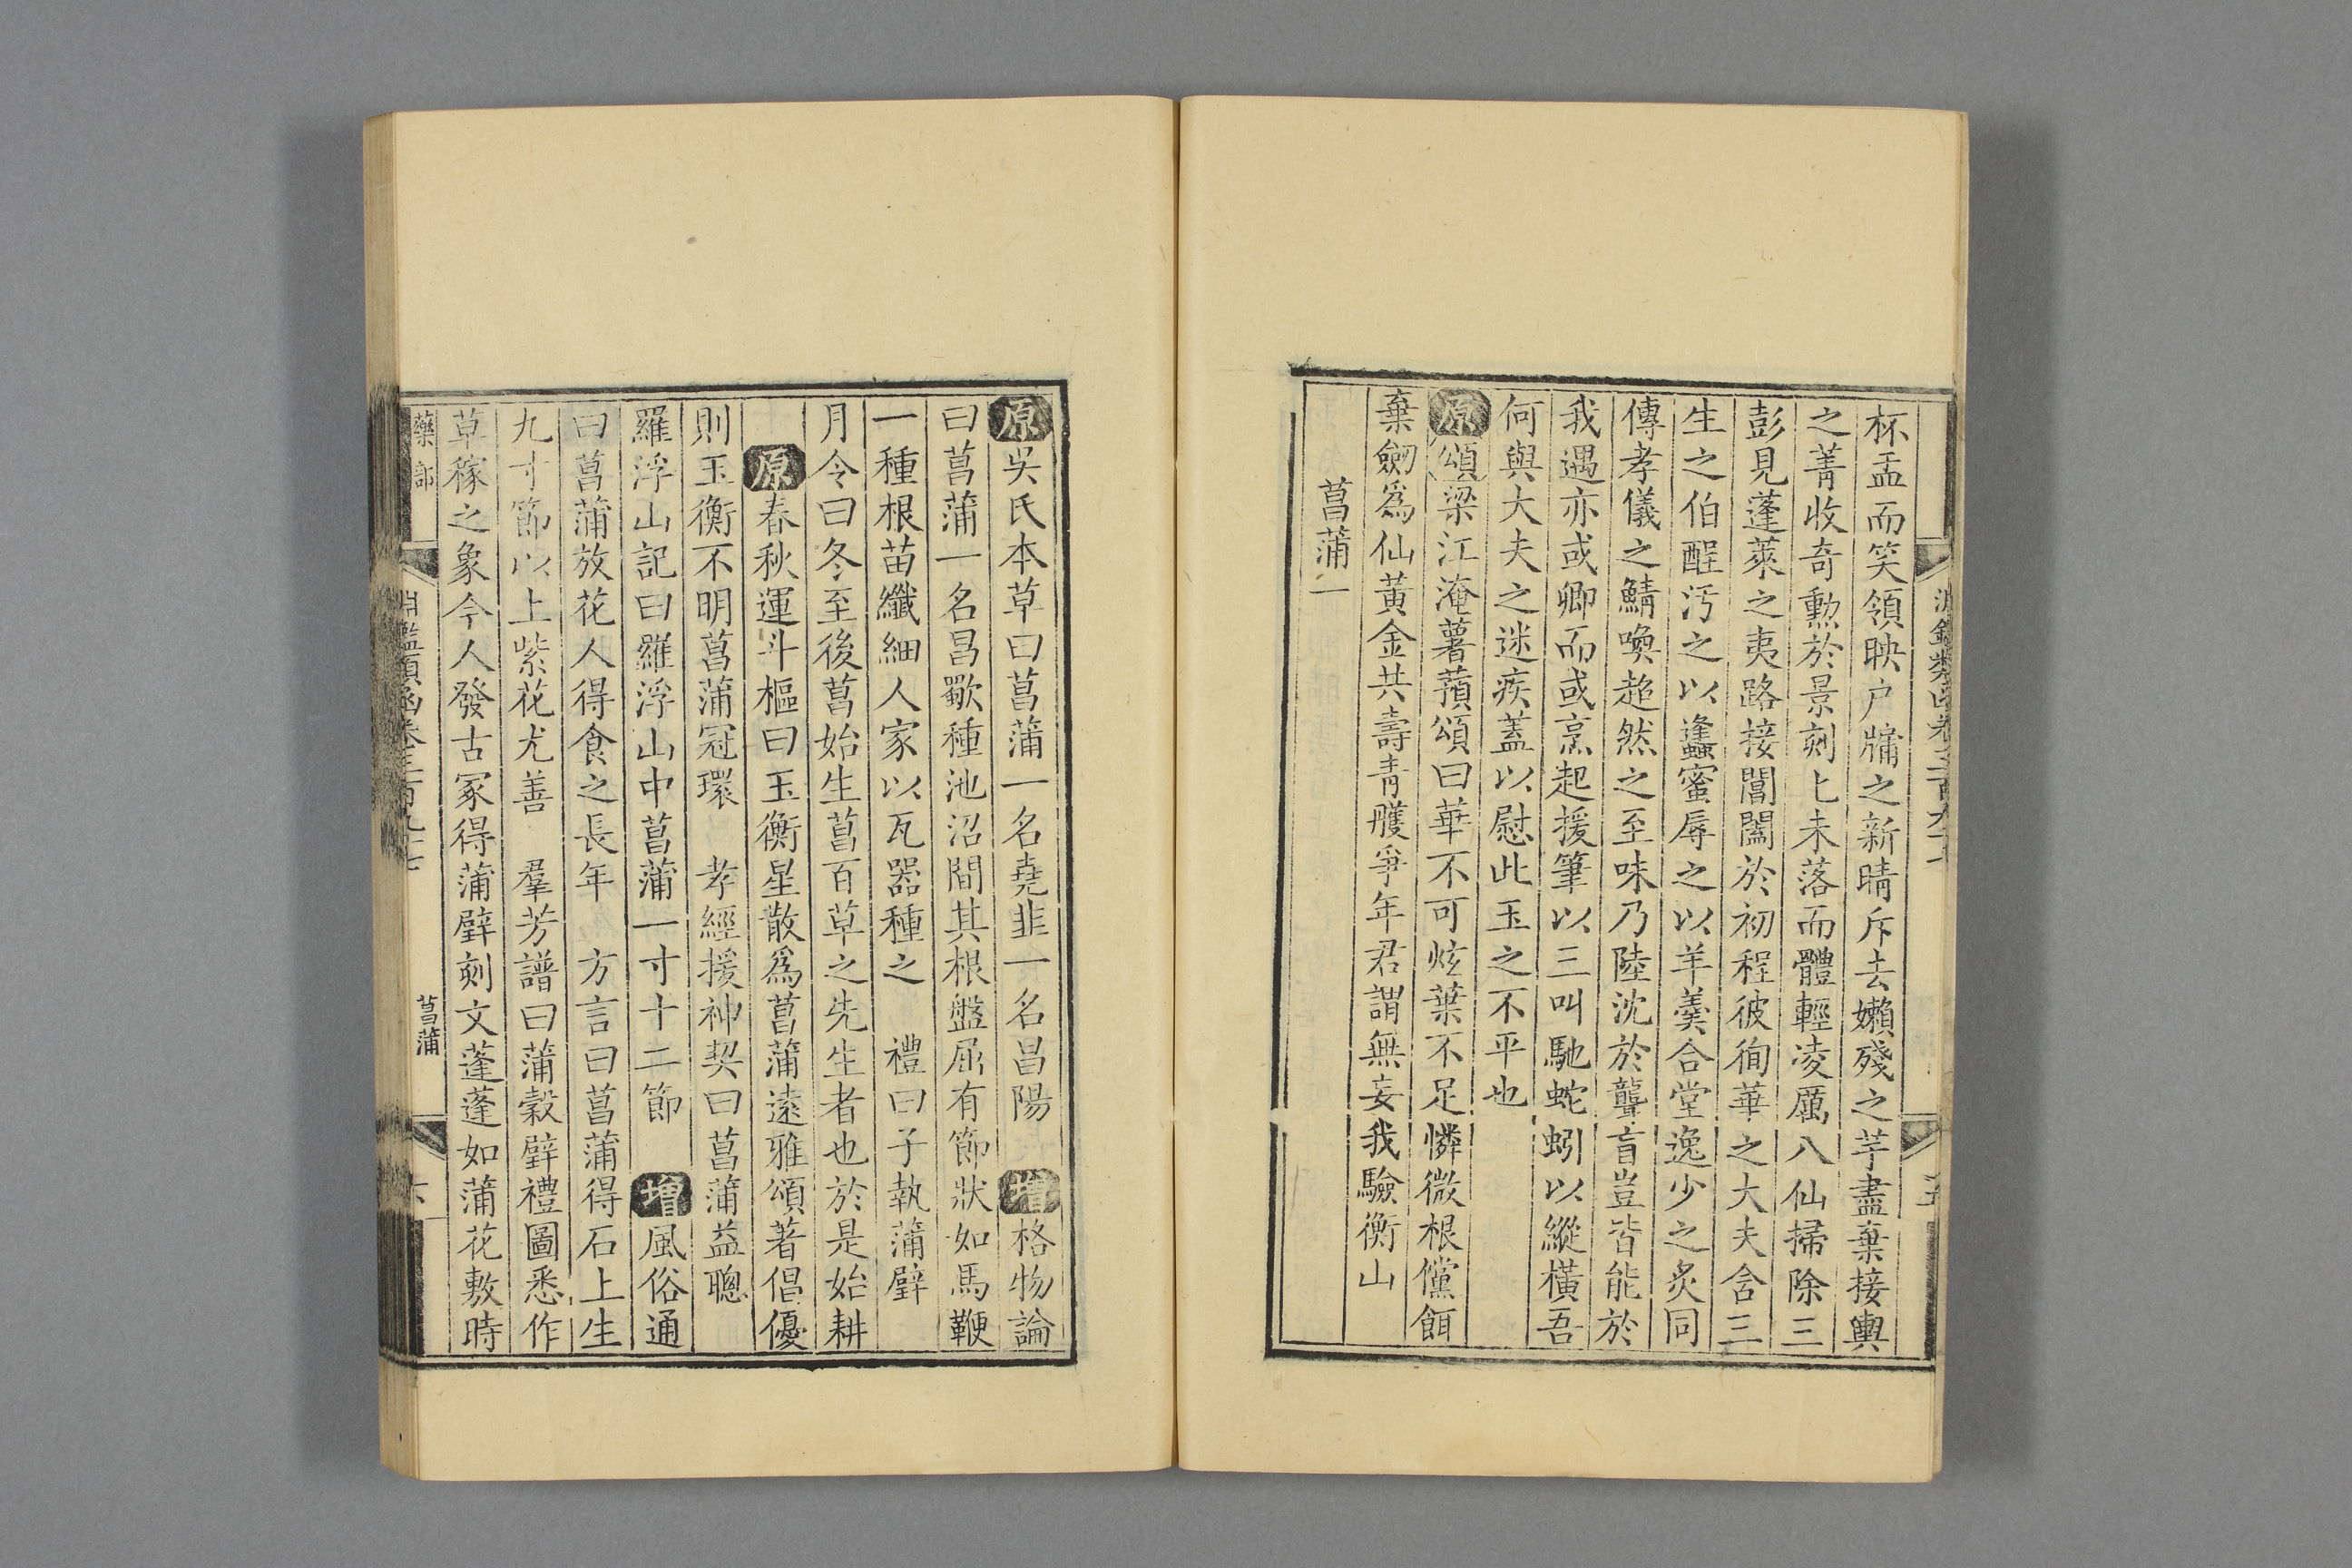 杯盂而笑領映户牖之新晴斥去嬾殘之芋盡棄接輿
之菁收奇勲於景刻匕未落而體輕凌厲八仙掃除三
彭見蓬萊之夷路接閶闔於初程彼徇華之大夫含三
生之伯酲汚之以蠭蜜辱之以羊羹合堂逸少之炙同
傳孝儀之鯖喚超然之至味乃陸沈於聾盲豈皆能於
我遇亦或卿而或烹起援筆以三叫馳蛇蚓以縱橫吾
何與大夫之迷疾蓋以慰此玉之不平也
原頌梁江淹薯蕷頌曰華不可炫葉不足憐微根儻餌
棄劒爲仙黃金共壽青雘爭年君謂無妄我驗衡山
菖蒲一
原吳氏本草曰菖蒲一名堯韭一名昌陽 增格物論
曰菖蒲一名昌歜種池沼間其根盤屈有節狀如馬鞭
一種根苗纖細人家以瓦器種之 禮曰子執蒲璧
月令曰冬至後菖始生菖百草之先生者也於是始耕
原春秋運斗樞曰玉衡星散爲菖蒲遠雅頌著倡優
則玉衡不明菖蒲冠環 孝經援神契曰菖蒲益聰
羅浮山記曰羅浮山中菖蒲一寸十二節 增風俗通
曰菖蒲放花人得食之長年 方言曰菖蒲得石上生
九寸節以上紫花尤善 羣芳譜曰蒲穀璧禮圖悉作
草稼之象今人發古冢得蒲璧刻文蓬蓬如蒲花敷時
藥部
淵鑑類函卷三百九十七
菖蒲
六